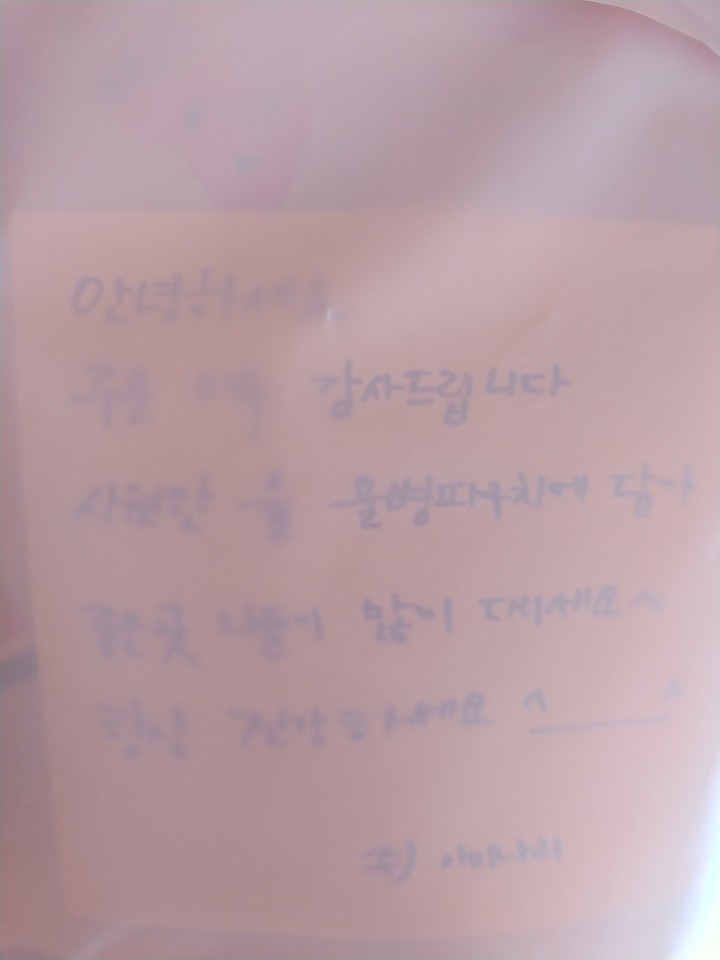 안녕하세요.
주문 감사드립니다
시원한 물 물병파우치에 담아
좋은곳 나들이 많이 다니세요~
항상 건강하세요 ^____^